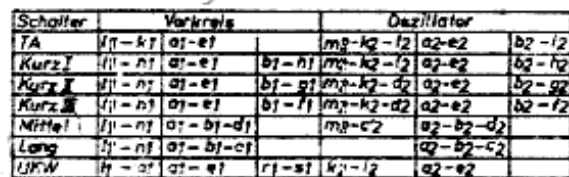 Schalter Vorkreis Oszillator
TA l1-k1 a1-e1 m2-k2-l2 a2-e2 b2-i2
Kurz I l1-n1 a1-e1 b1-h1 m2-k2-l2 a2-e2 b2-h2
Kurz II l1-n1 a1-e1 b1-g1 m2-k2-d2 a2-e2 b2-g2
Kurz III l1-n1 a1-e1 b1-f1 m2-k2-d2 a2-e2 b2-f2
Mittel l1-n1 a1-b1-d1 m2-c2 a2-b2-d2
Lang l1-n1 a1-b1-c1 a2-b2-c2
UKW a1-e1 r1-s1 k2-l2 a2-e2